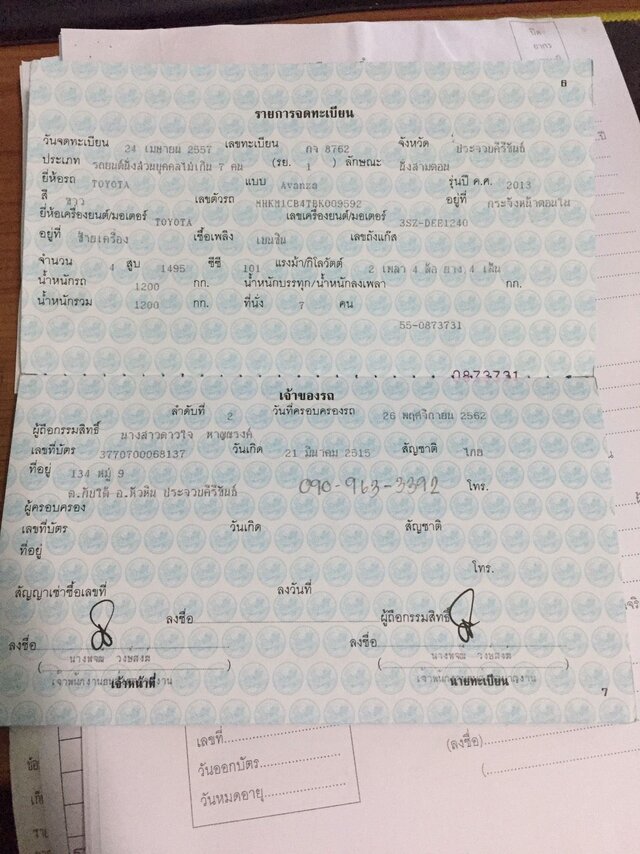 ปิด
อากร
6
รายการจดทะเบียน
วันจดทะเบียน 24 เมษายน 2557 เลขทะเบียน กจ 8762 จังหวัด ประจวบคีรีขันธ์
ประเภท รถยนต์นั่งส่วนบุคคลไม่เกิน 7 คน (รย. 1 ) ลักษณะ นั่งสามตอน
ยี่ห้อรถ TOYOTA แบบ Avanza รุ่นปี ค.ศ. 2013
สี ขาว เลขตัวรถ MHKM1CB4TBK009592 อยู่ที่ กระจังหน้าตอนใน
ยี่ห้อเครื่องยนต์/มอเตอร์ TOYOTA เลขเครื่องยนต์/มอเตอร์ 3SZ-DEE1240
อยู่ที่ ซ้ายเครื่อง เชื้อเพลิง เบนซิน เลขถังแก๊ส
จำนวน 4 สูบ 1495 ซีซี 101 แรงม้า/กิโลวัตต์ 2 เพลา 4 ล้อ ยาง 4 เส้น
น้ำหนักรถ 1200 กก. น้ำหนักบรรทุก/น้ำหนักลงเพลา กก.
น้ำหนักรวม 1200 กก. ที่นั่ง 7 คน
55-0873731
0873731
เจ้าของรถ
ลำดับที่ 2 วันที่ครอบครองรถ 26 พฤศจิกายน 2562
ผู้ถือกรรมสิทธิ์ นางสาวดาวใจ หาญณรงค์
เลขที่บัตร 3770700068137 วันเกิด 21 มีนาคม 2515 สัญชาติ ไทย
ที่อยู่ 134 หมู่ 9
ต.ทับใต้ อ.หัวหิน ประจวบคีรีขันธ์ 090-963-3392 โทร.
ผู้ครอบครอง
เลขที่บัตร วันเกิด สัญชาติ
ที่อยู่
โทร.
สัญญาเช่าซื้อเลขที่ ลงวันที่
ลงชื่อ ผู้ถือกรรมสิทธิ์
ลงชื่อ ลงชื่อ
เจ้าหน้าที่ นายทะเบียน
7
เลขที่
วันออกบัตร
วันหมดอายุ
(ลงชื่อ)